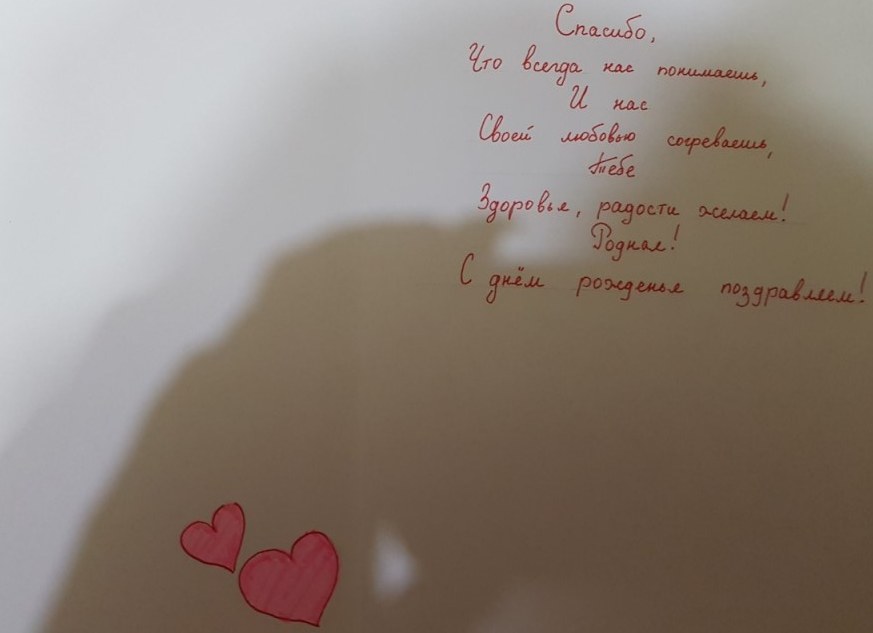 Спасибо,
Что всегда нас понимаешь,
И нас
Своей любовью согреваешь,
Тебе
Здоровья, радости желаем!
Родная!
С днём рожденья поздравляем!